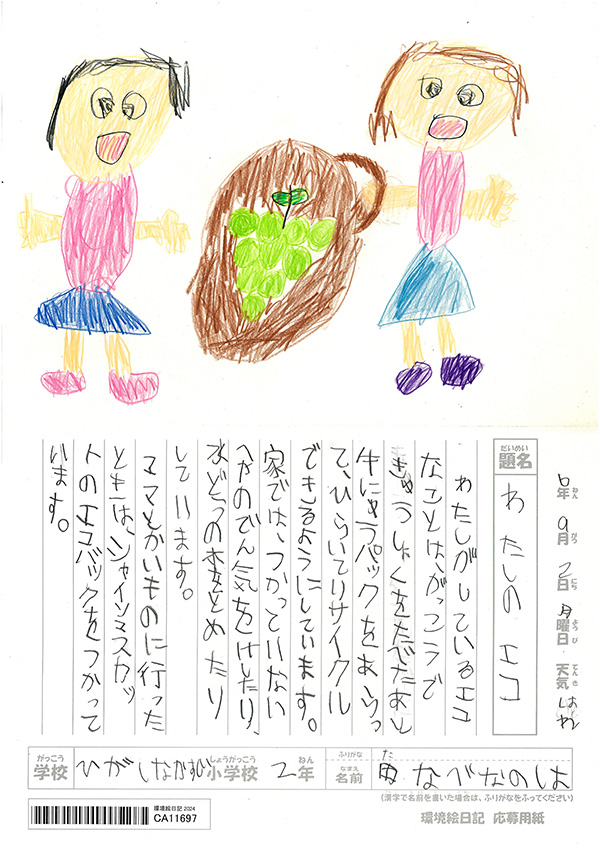 6年9月2日月曜日 天気 はれ
ねん がつ にち ようび てんき
だいめい
題名 わたしの エコ
わたしがしているエコ
なことは、がっこうで
きゅうしょくをたべたあと
牛にゅうパックをあらっ
て、ひらいてリサイクル
できるようにしています。
家では、つかっていない
へやのでん気をけしたり、
水どうの水をとめたり
しています。
ママとかいものに行った
ときは、シャインマスカッ
トのエコバックをつかって
います。
がっこう しょうがっこう ねん ふりがな た
学校 ひがしなかすじ小学校 2年 なまえ 名前 田なべなのは
(漢字で名前を書いた場合は、ふりがなをふってください)
環境絵日記 2024
CA11697
環境絵日記 応募用紙